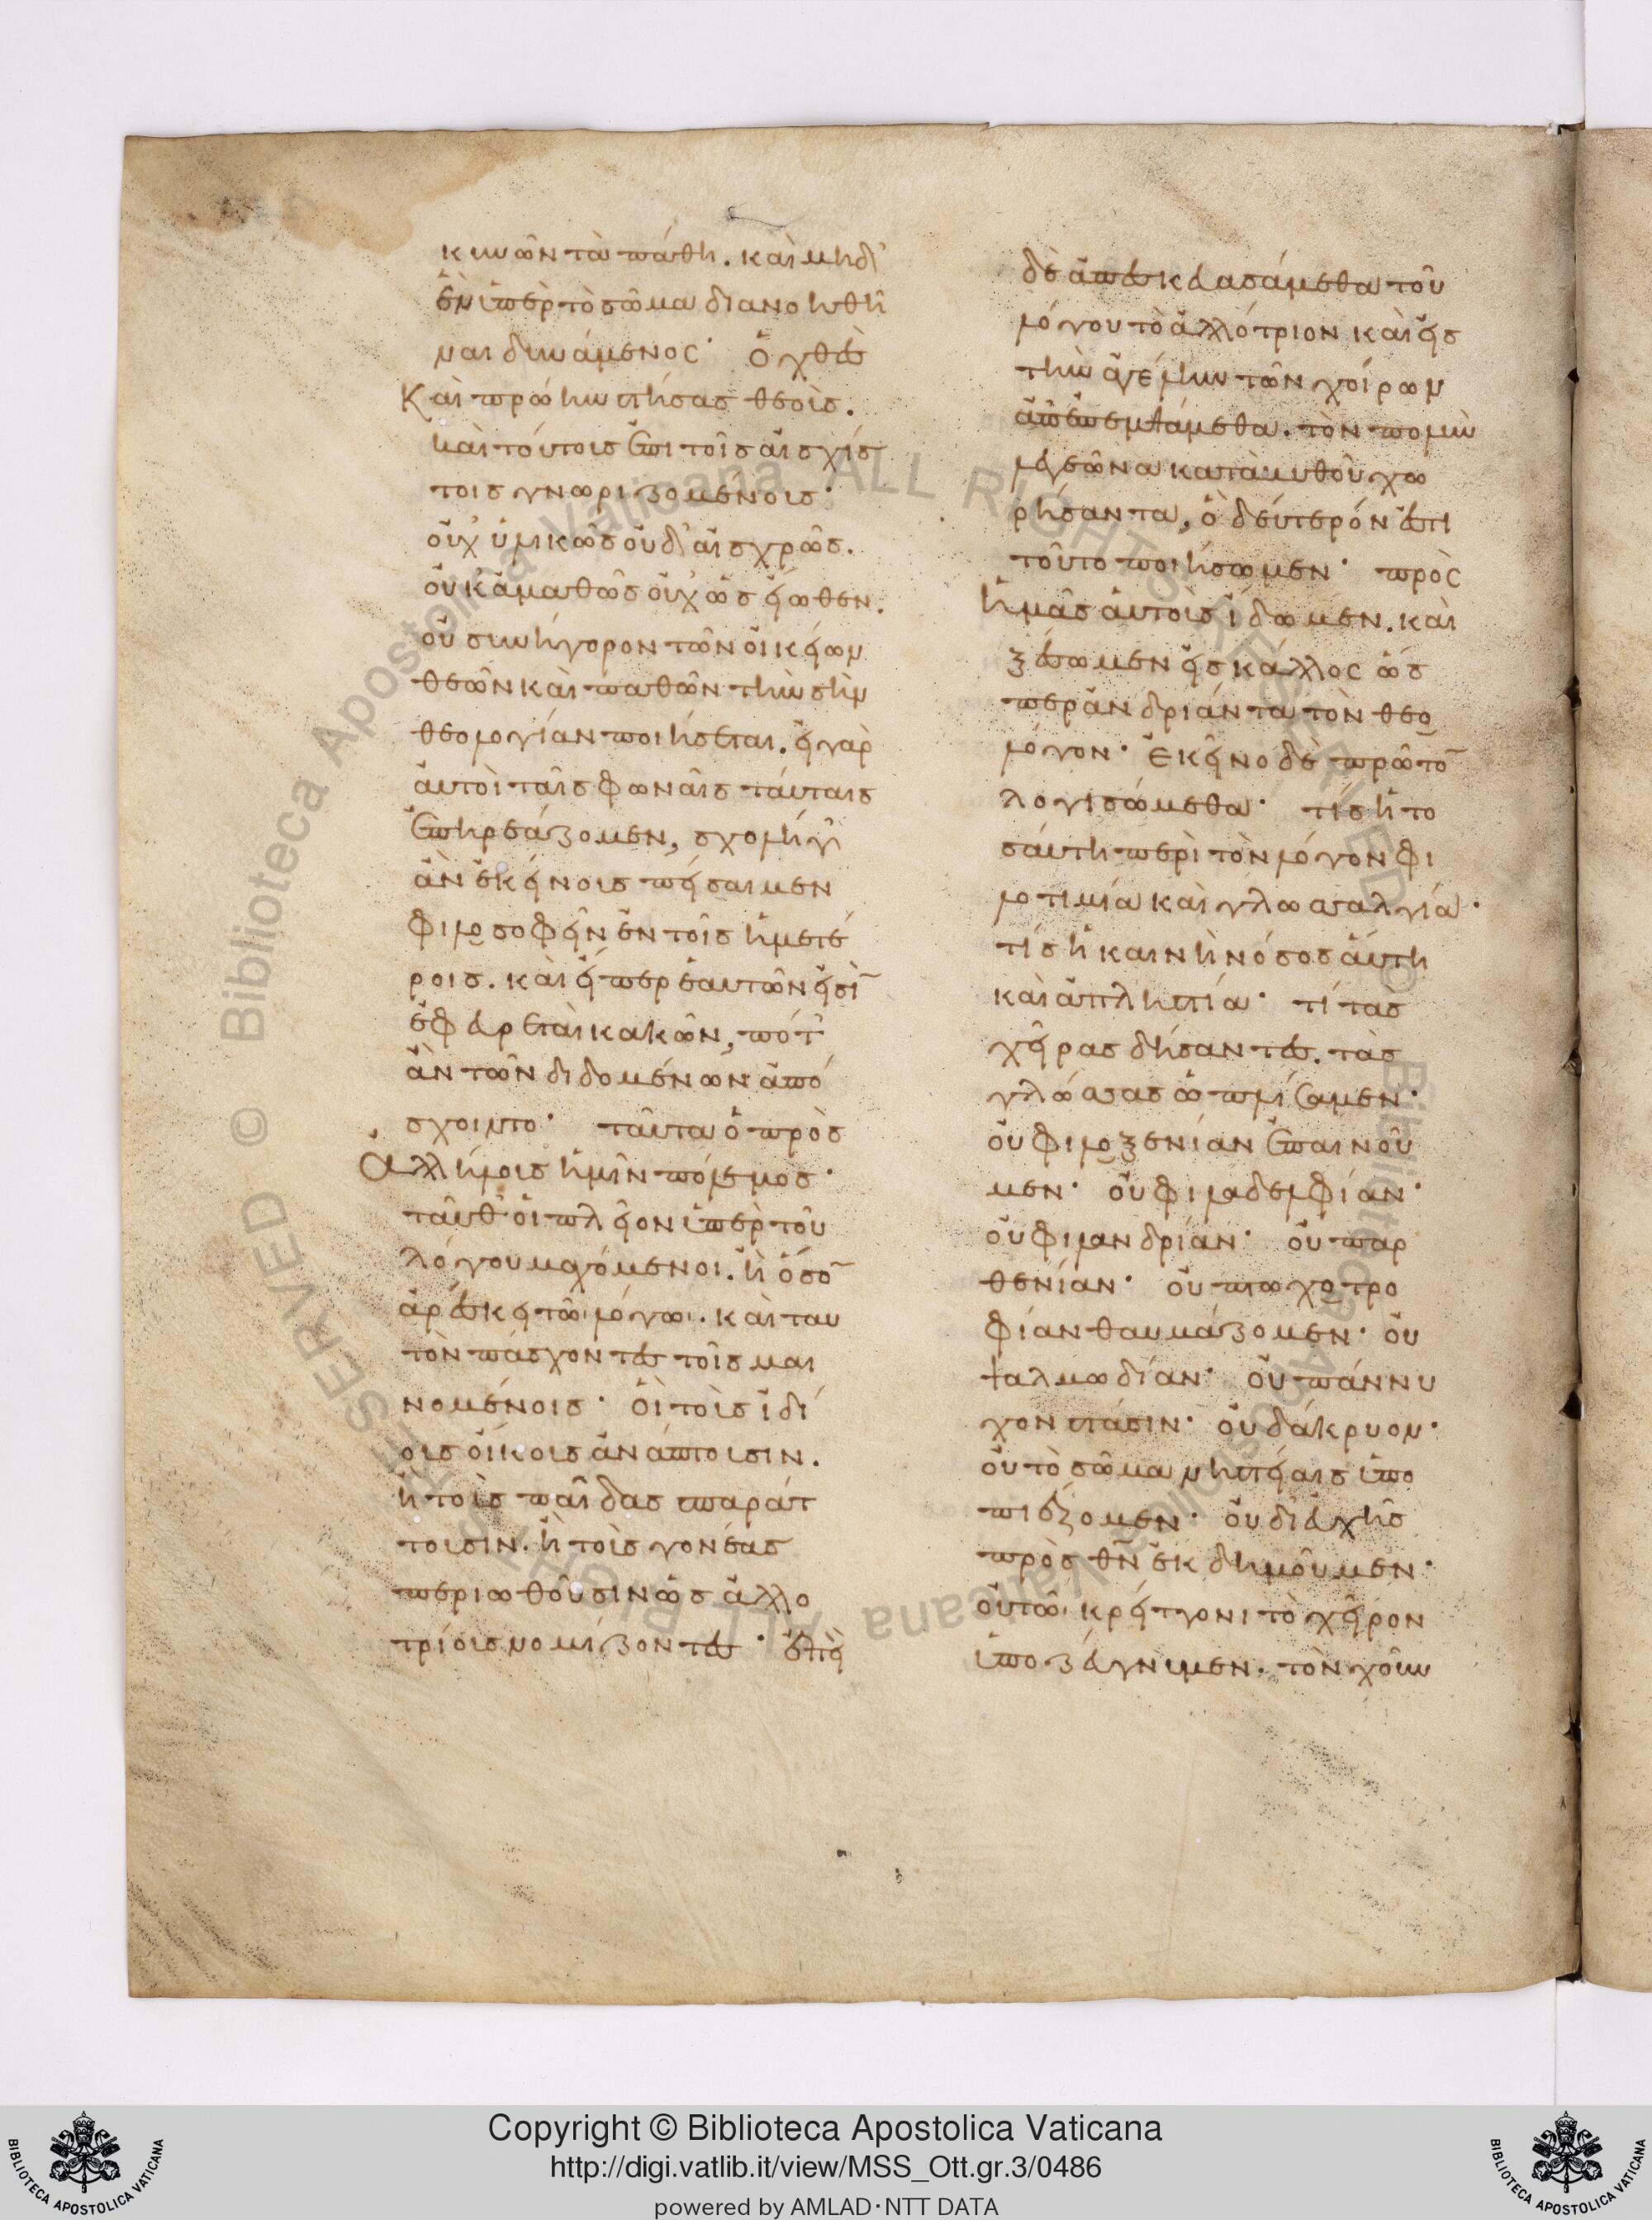 κινῶν τὰ πάθη. καὶ μηδὲ
ἓν ὑπὲρ τὸ σῶμα διανοηθῆ
ναι δυνάμενος· ὄχθει
Καὶ προσηυτήσας θεοῖς.
καὶ τούτοις ἐπὶ τοῖς αἰσχίσ
τοις γνωριζομένοις·
οὐχ' ὑλικῶς οὐδ' αἰσχρῶς.
οὐκ ἀμαθῶς οὐχ' ὡς εἴωθεν.
οὐ συνήγορον τῶν οἰκείων
θεῶν καὶ παθῶν τὴν σὴν
θεολογίαν ποιήσεται. εἰ γὰρ
αὐτοὶ ταῖς φωναῖς ταύταις
ἐπηρεάζομεν, σχολῇ γ'
ἂν ἐκείνοις πείσαιμεν
φιλοσοφεῖν ἐν τοῖς ἡμετέ
ροις. καὶ εἴπερ ἑαυτῶν εἰσὶ
ἐφευρεταὶ κακῶν, πότ'
ἂν τῶν διδομένων ἀπό
σχοιντο· ταῦτα ὁ πρὸς
Ἀλλήλοις ἡμῖν πόλεμος·
ταῦθ' οἱ πλεῖον ὑπὲρ τοῦ
λόγου μαχόμενοι. ἢ ὅσο
ἀρέσκει τῶ λόγω. καὶ ταυ
τὸν πάσχοντες τοῖς μαι
νομένοις· οἳ τοὺς ἰδί
ους οἴκους ἀνάπτουσιν.
ἢ τοὺς παῖδας σπαράτ
τουσιν. ἢ τοὺς γονέας
περιωθοῦσιν ὡς ἀλλο
τρίους νομίζοντες· ἐπεὶ
δὲ ἀπεσκευασάμεθα τοῦ
λόγου τὸ ἀλλότριον καὶ εἰς
τὴν ἀγέλην τῶν χοίρων
ἀπεπεμψάμεθα. τὸν πολὺν
λεγεῶνα κατὰ βυθοῦ χω
ρήσαντα, ὃ δεύτερόν ἐστι
τοῦτο ποιήσωμεν· πρὸς
ἡμᾶς αὐτοὺς ἴδωμεν. καὶ
ξέσωμεν εἰς κάλλος ὥσ
περ ἀνδριάντα τὸν θεο
λόγον· ἐκεῖνο δὲ πρῶτο
λογισώμεθα· τίς ἡ το
σαύτη περὶ τὸν λόγον φι
λοτιμία καὶ γλωσσαλγία·
τίς ἡ καινὴ νόσος αὕτη
καὶ ἀπληστία· τί τὰς
χεῖρας δήσαντες. τὰς
γλώσσας ὡπλίσαμεν·
οὐ φιλοξενίαν ἐπαινοῦ
μεν· οὐ φιλαδελφίαν·
οὐ φιλανδρίαν· οὐ παρ
θενίαν· οὐ πτωχοτρο
φίαν θαυμάζομεν· οὐ
ψαλμωδίαν· οὐ πάννυ
χον στάσιν· οὐ δάκρυον·
οὐ τὸ σῶμα νηστείαις ὑπο
πιέζομεν· οὐ δι' εὐχῆς
πρὸς θν ἐκδημοῦμεν·
οὐ τῶ κρείττονι τὸ χεῖρον
ὑποζεύγνυμεν. τὸν χοῦν